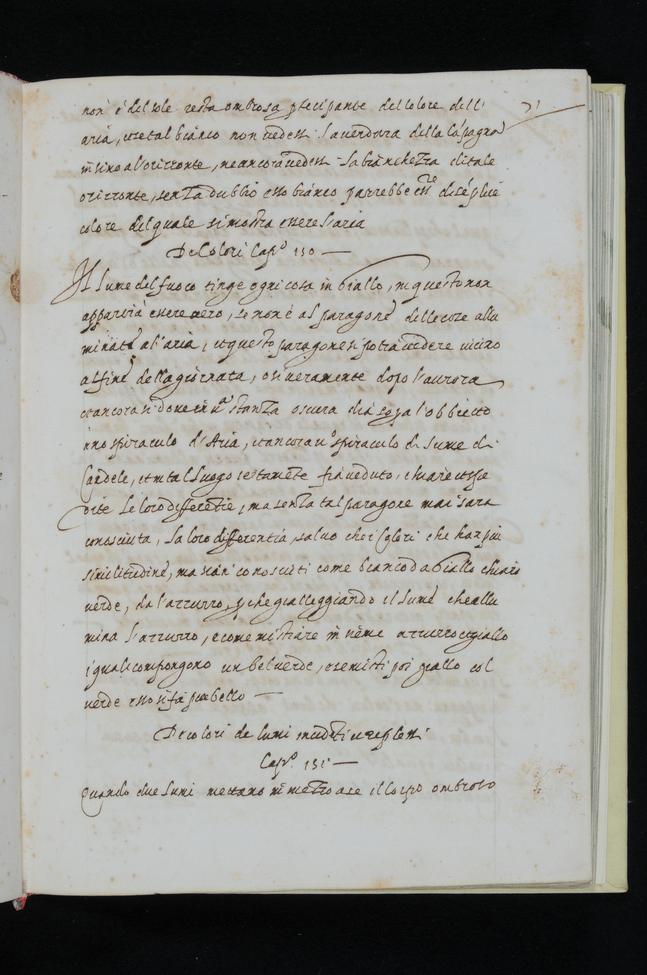 non è del sole resta ombrosa ptecipante del colore dell' 71
aria, et se tal bianco non vedessi la verdura della capagna
insino al'orizzonte, ne ancora vedessi la bianchezza di tale
orizzonte, senza dubbio esso bianco parrebbe essre di seplice
colore del quale si mostra essere l'aria
De Colori Capo. 150 —
Il lume del fuoco tinge ogni cosa in giallo, ma questo non
apparirà essere vero, se non è al paragone delle cose allu
minate al'aria, et questo paragone si potrà vedere vicino
al fine della giornata, o si veramente dopo l'aurora
et ancora si dove in ua stanza oscura dia sopa l'obbietto
uno spiraculo d'Aria, et ancora uo spiraculo di lume di
Candele, et in tal luogo certamete fia veduto, chiare et spe
dite le loro differetie, ma senza tal paragone mai sara
conosciuta, la loro differentia, salvo che i colori che han piu
similitudine, ma fian conosciuti come bianco da giallo chiaro
verde, da l'azzurro, pche gialleggiando il lume che allu
mina l'azzurro, e come mistiare insieme azzurro e giallo
i quali compongono un bel verde, e se misti poi giallo col
verde esso si fa piu bello —
De colori de lumi incideti et reflessi
Capo. 151 —
Quando due lumi mettano in mezzo a se il corpo ombroso